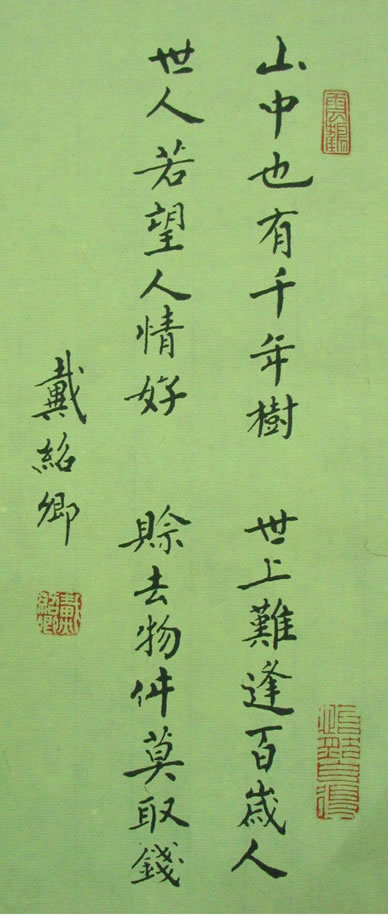 山中也有千年樹　世上難逢百歲人
世人若望人情好　賒去物件莫取錢
戴紹卿